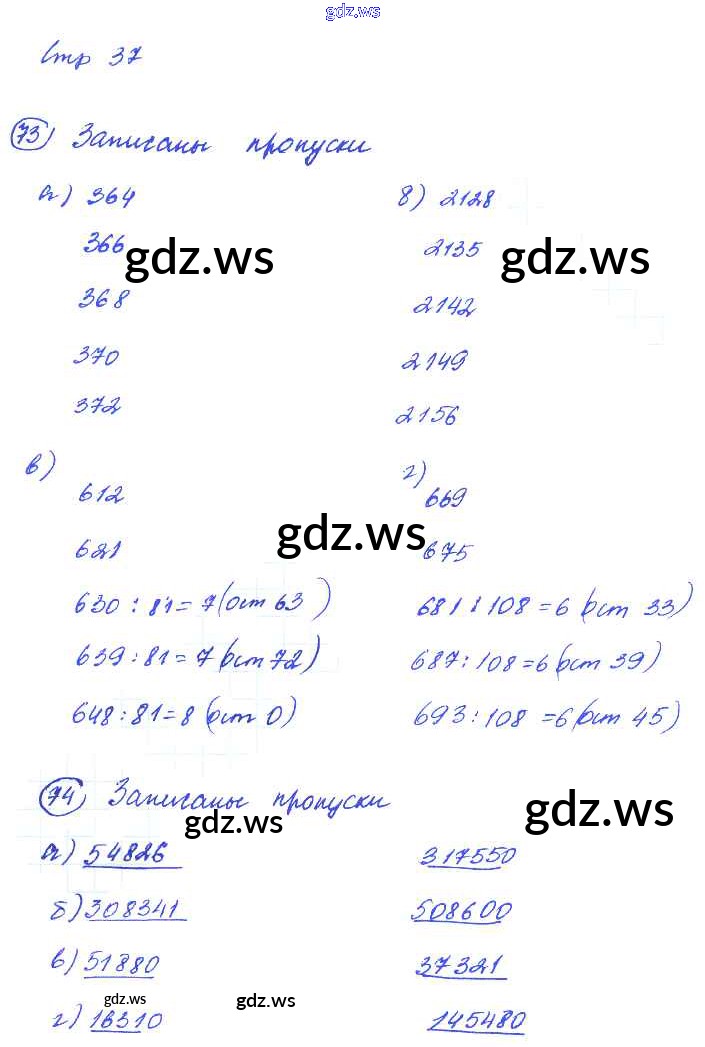 gdz.ws
Стр 37
73) Записаны пропуски
а) 364
366
368
370
372
б) 2128
2135
2142
2149
2156
gdz.ws gdz.ws
в)
612
621
630 : 81 = 7 (ост 63)
639 : 81 = 7 (ост 72)
648 : 81 = 8 (ост 0)
г)
669
675
681 : 108 = 6 (ост 33)
687 : 108 = 6 (ост 39)
693 : 108 = 6 (ост 45)
gdz.ws
74) Записаны пропуски
gdz.ws gdz.ws
а) 54826 317550
б) 308341 508600
в) 51880 37321
gdz.ws gdz.ws
г) 16310 145480